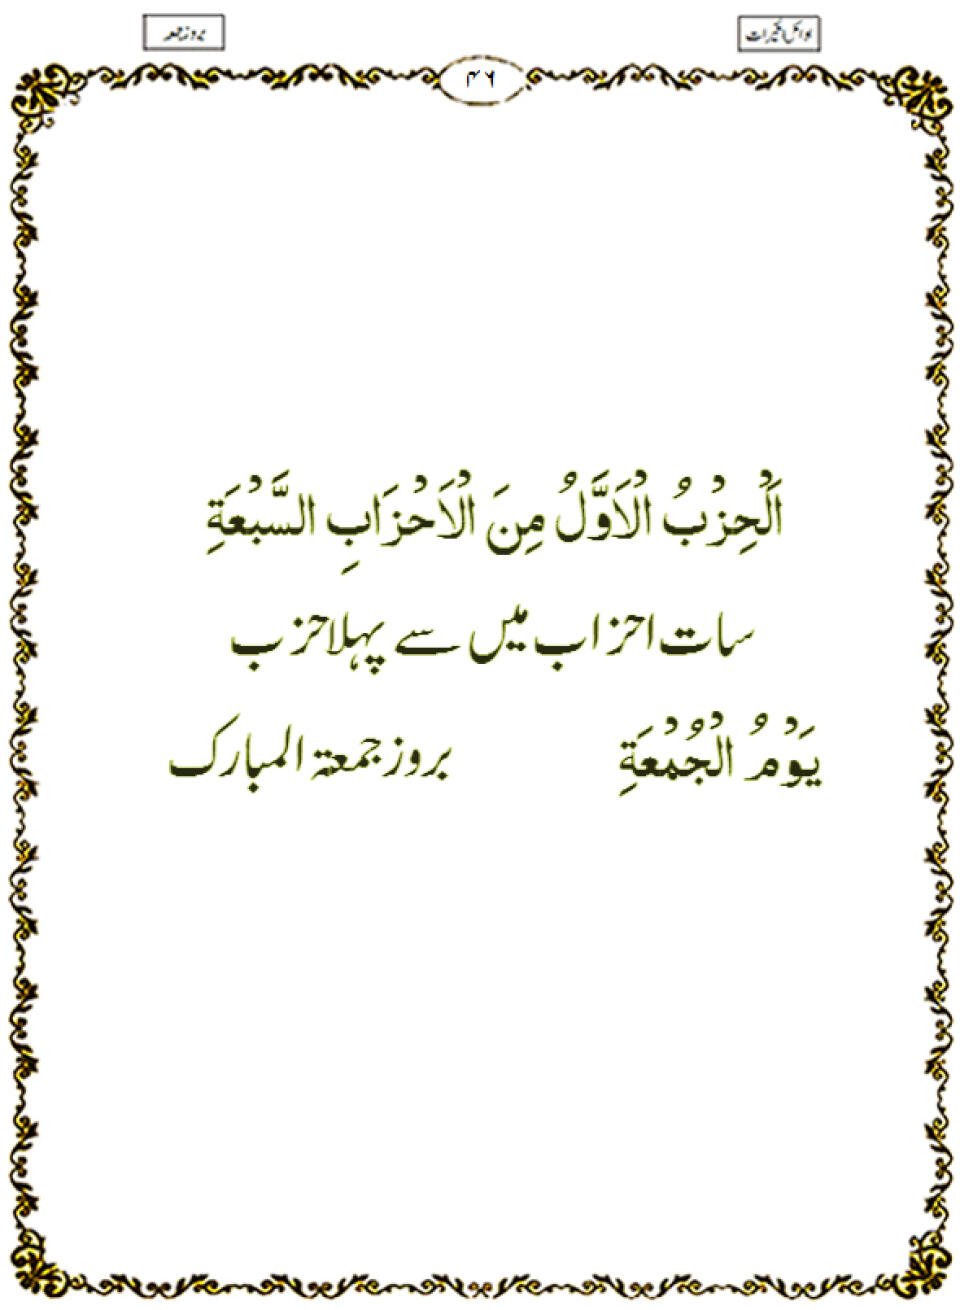 اوائل الخیرات
بروز جمعہ
۴۶
اَلْحِزْبُ الْاَوَّلُ مِنَ الْاَحْزَابِ السَّبْعَةِ
سات احزاب میں سے پہلا حزب
يَوْمُ الْجُمُعَةِ بروز جمعۃ المبارک